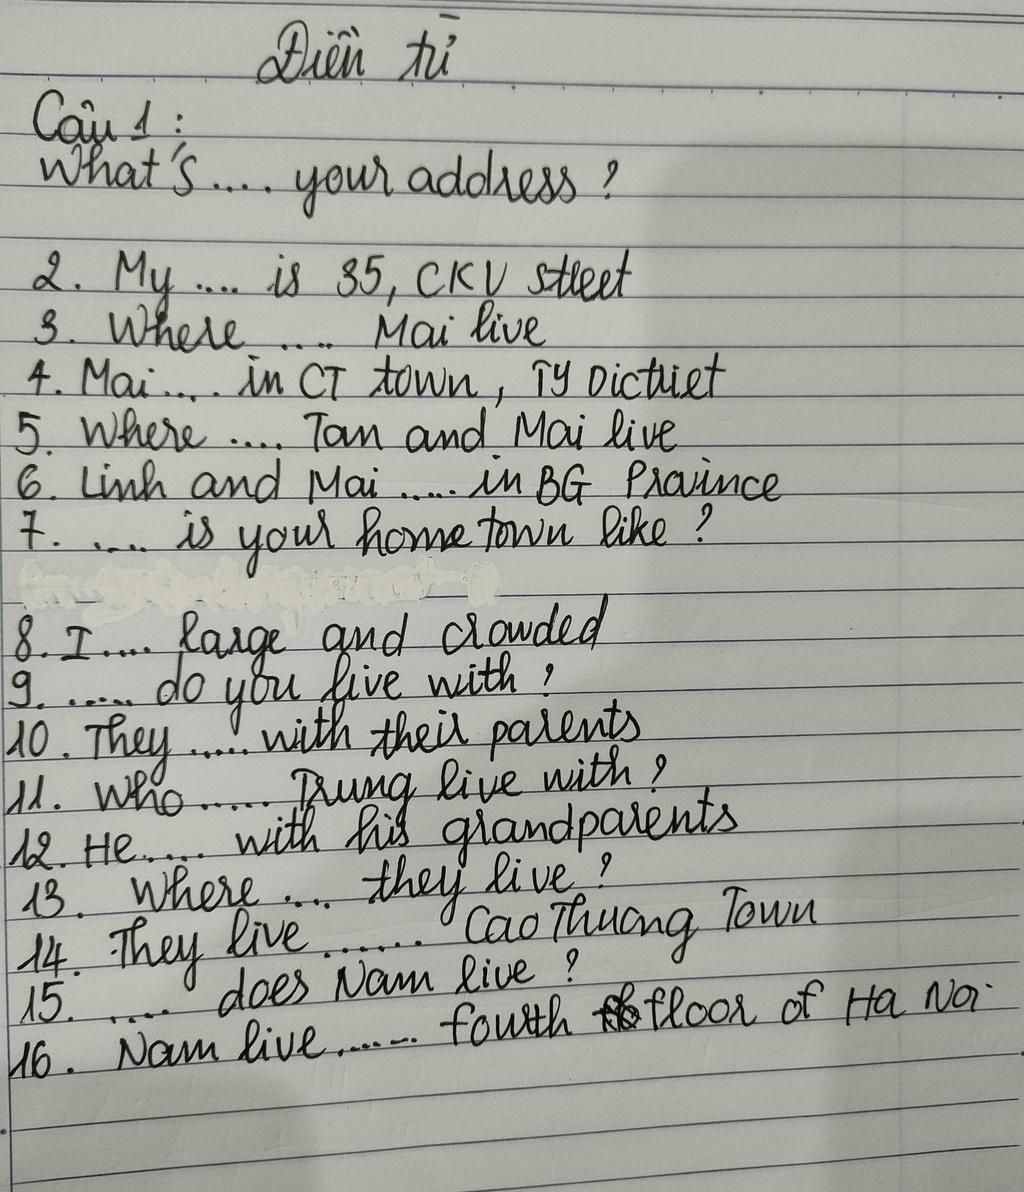 Điền từ
Câu 1 :
What's .... your address ?
2. My .... is 35, CKV street
3. Where .... Mai live
4. Mai .... in CT town, TY Dictriet
5. Where .... Tan and Mai live
6. Linh and Mai ..... in BG Province
7. .... is your hometown like ?
8. I .... large and crowded
9. ..... do you live with ?
10. They ..... with their parents
11. Who ..... Trung live with ?
12. He .... with his grandparents
13. Where .... they live ?
14. They live ...... Cao Thuong Town
15. .... does Nam live ?
16. Nam live ...... fourth floor of Ha Noi